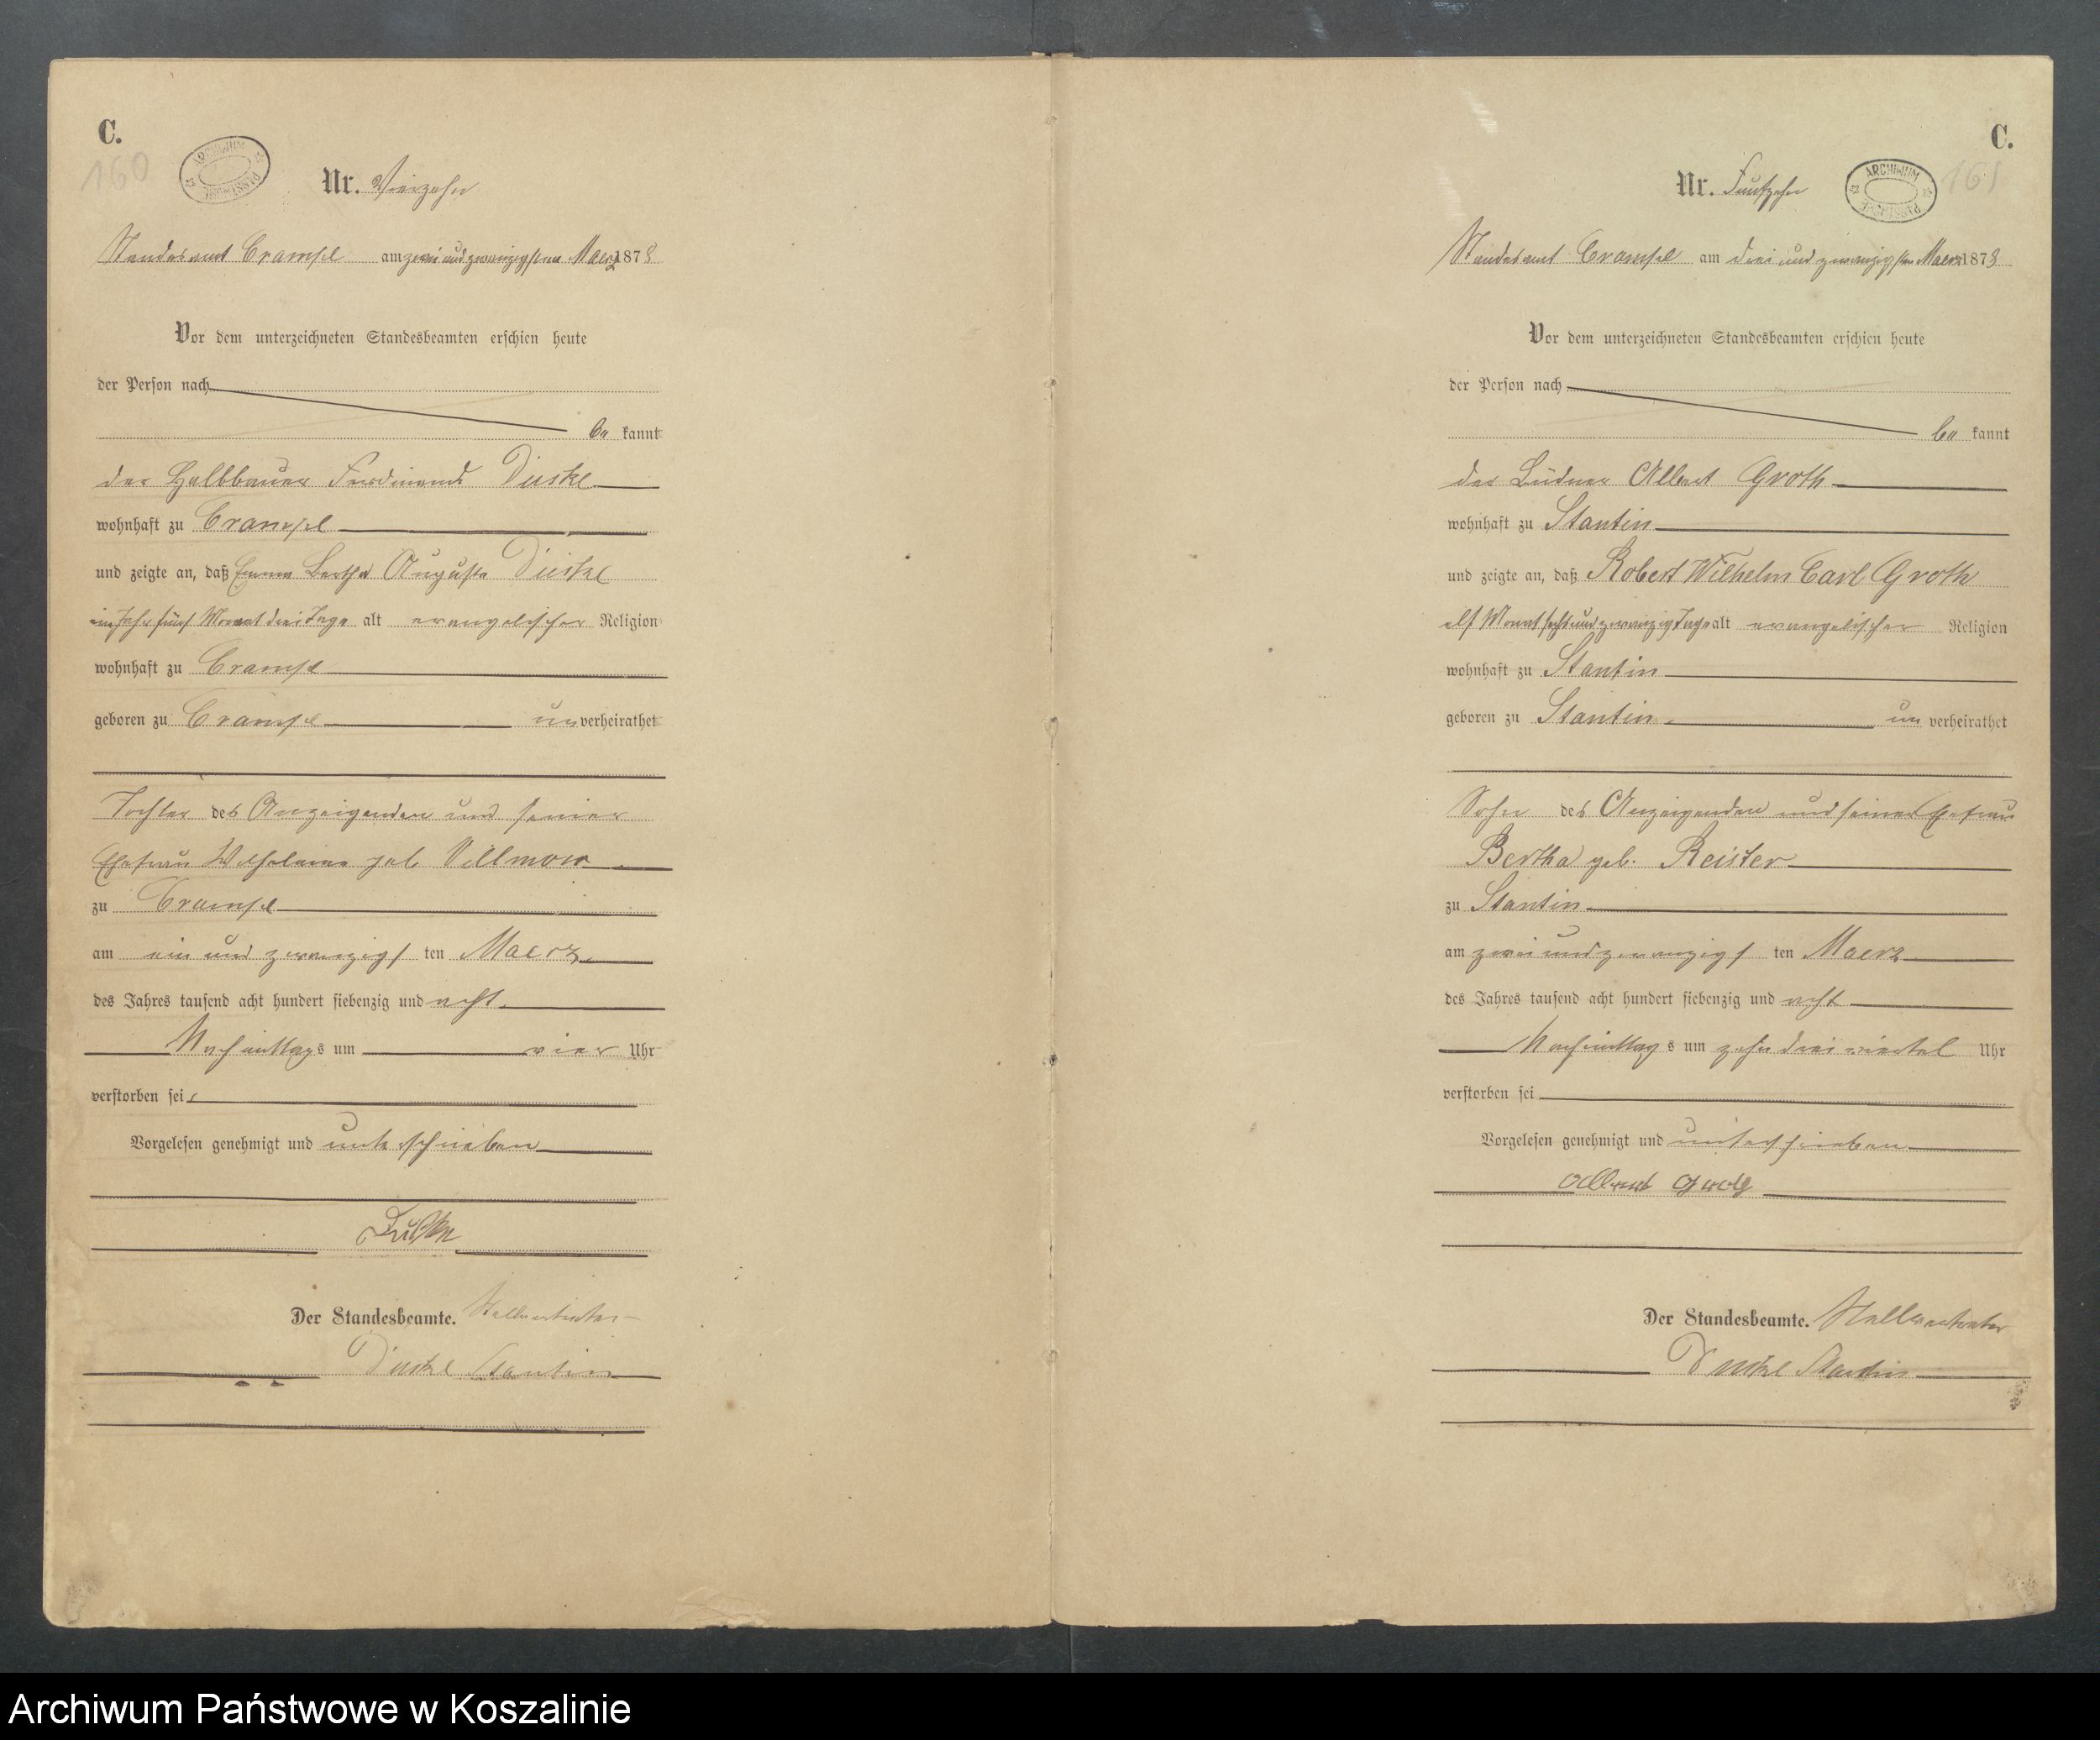 C.
160
ARCHIWUM PAŃSTWOWE
Nr. Vierzehn
Standesamt Crampe am zwei und zwanzigsten Maerz 1878
Vor dem unterzeichneten Standesbeamten erschien heute
der Person nach
be kannt
der Halbbauer Ferdinand Duske
wohnhaft zu Crampe
und zeigte an, daß Emma Bertha Auguste Duske
ein Jahr fünf Monat drei Tage alt evangelischer Religion
wohnhaft zu Crampe
geboren zu Crampe unverheirathet
Tochter des Anzeigenden und seiner
Ehefrau Wilhelmine geb. Villmow
zu Crampe
am ein und zwanzigsten Maerz
des Jahres tausend acht hundert siebenzig und acht
Nachmittags um vier Uhr
verstorben sei
Vorgelesen genehmigt und unterschrieben
Duske
Der Standesbeamte. Stellvertreter
Duske Stantin
C.
161
ARCHIWUM PAŃSTWOWE
Nr. Fünfzehn
Standesamt Crampe am drei und zwanzigsten Maerz 1878
Vor dem unterzeichneten Standesbeamten erschien heute
der Person nach
be kannt
der Büdner Albert Groth
wohnhaft zu Stantin
und zeigte an, daß Robert Wilhelm Carl Groth
elf Monat sechsundzwanzig Tage alt evangelischer Religion
wohnhaft zu Stantin
geboren zu Stantin un verheirathet
Sohn des Anzeigenden und seiner Ehefrau
Bertha geb. Reister
zu Stantin
am zwei und zwanzigsten Maerz
des Jahres tausend acht hundert siebenzig und acht
Nachmittags um zehn drei viertel Uhr
verstorben sei
Vorgelesen genehmigt und unterschrieben
Albert Groth
Der Standesbeamte. Stellvertreter
Duske Stantin
Archiwum Państwowe w Koszalinie